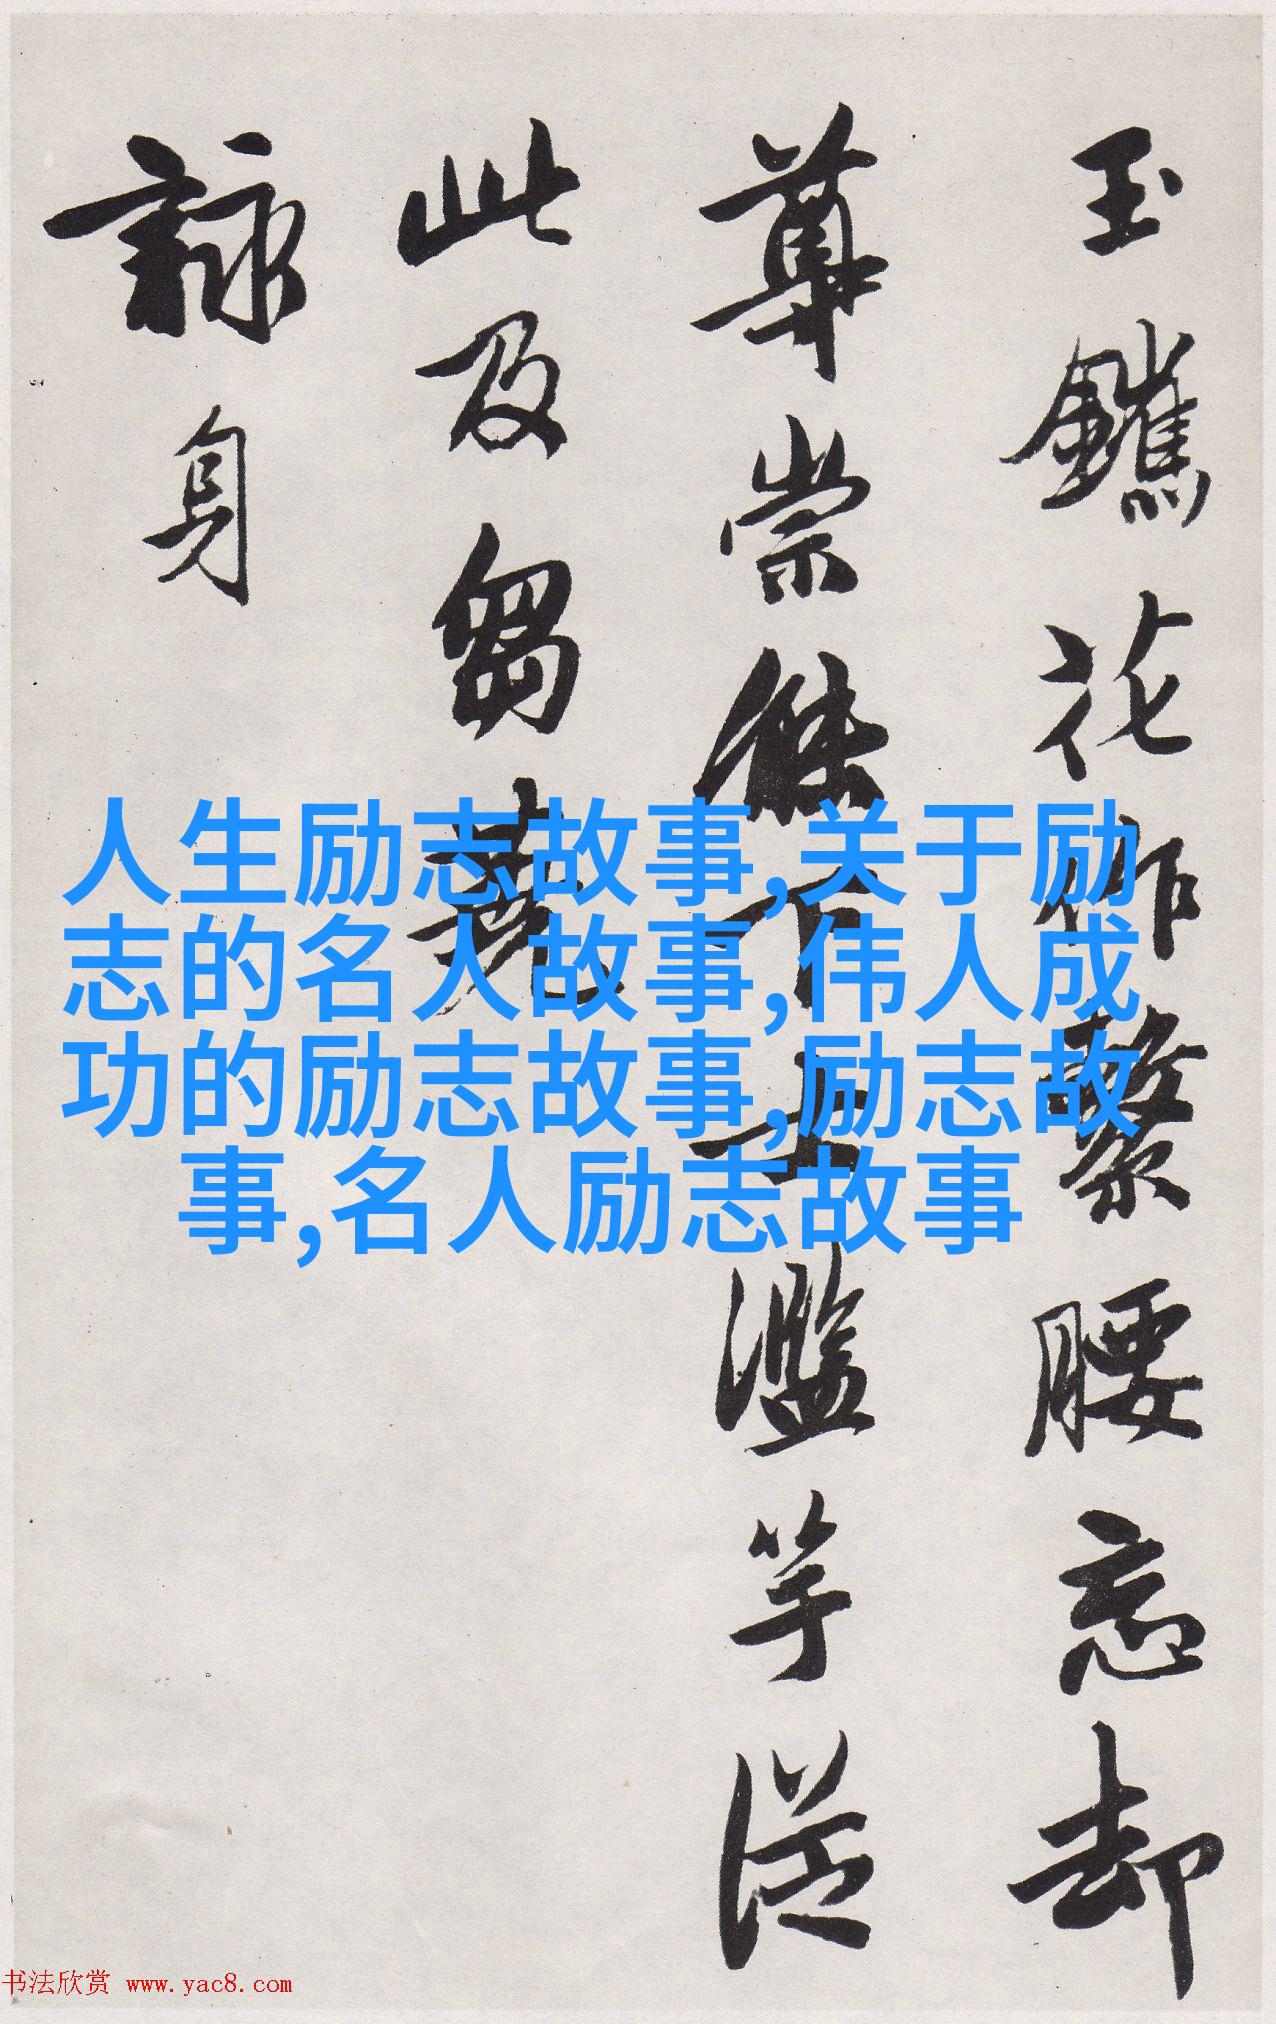 玉鑱花作繫腰忘却
尊崇儕下士濫竽従
此及芻蕘
詠身
人生励志故事,关于励
志的名人故事,伟人成
功的励志故事,励志故
事,名人励志故事
书法欣赏 www.yac8.com